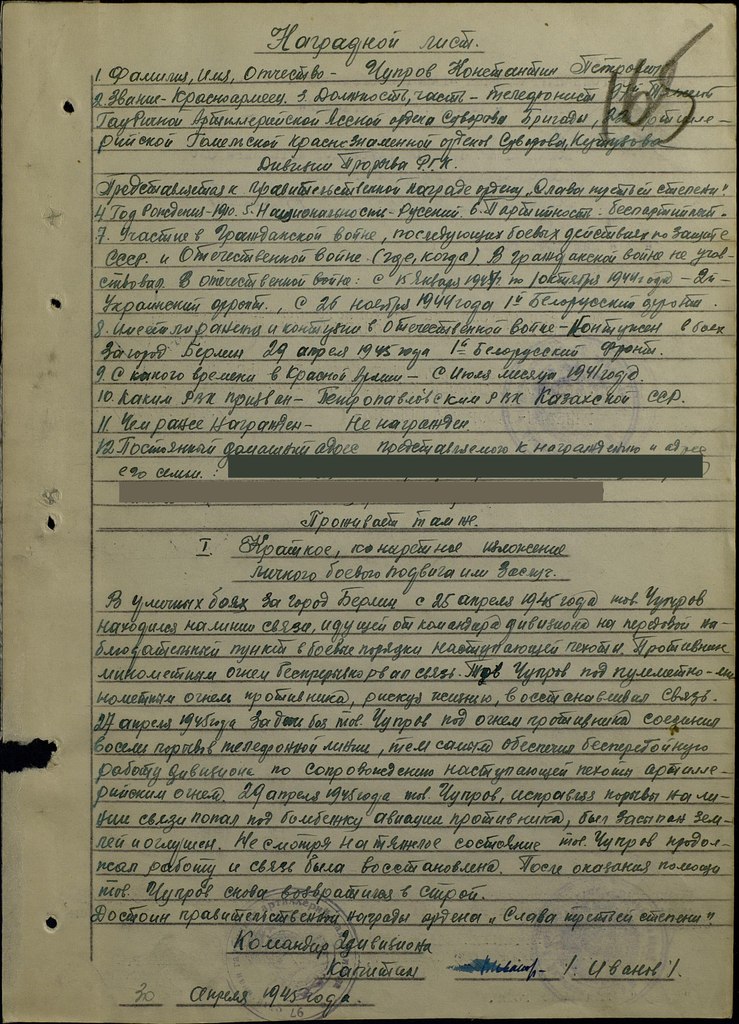 Наградной лист.
1. Фамилия, Имя, Отчество - Чупров Константин Петрович
2. Звание - Красноармеец. 3. Должность, часть - телефонист
Гаубичной Артиллерийской Ясской ордена Суворова Бригады, 22 Артилле-
рийской Гомельской краснознаменной орденов Суворова, Кутузова
Дивизии Прорыва Р.Г.К.
Представляется к правительственной награде ордену "Слава третьей степени"
4. Год Рождения - 1910. 5. Национальность - Русский. 6. Партийность - беспартийный.
7. Участие в Гражданской войне, последующих боевых действиях по защите
СССР и Отечественной войне (где, когда) В гражданской войне не учав-
ствовал. В отечественной войне: с 15 января 1944 по 1 октября 1944 года - 2й-
Украинский фронт., с 26 ноября 1944 года 1й Белорусский фронт.
8. Имеет ли ранения и контузии в отечественной войне - Контужен в боях
За город Берлин 29 апреля 1945 года 1й Белорусский Фронт.
9. С какого времени в Красной Армии - с Июля месяца 1941 года.
10. Каким РВК призван - Петропавловским РВК Казахской ССР.
11. Чем ранее награжден - Не награжден
12. Постоянный домашний адрес представляемого к награждению и адрес
его семьи. :
Проживает там же.
I. Краткое, конкретное изложение
личного боевого подвига или Заслуг.
В уличных боях за город Берлин с 25 апреля 1945 года тов. Чупров
находился на линии связи, идущей от командира дивизиона на передовой на-
блюдательный пункт в боевые порядки наступающей пехоты. Противник
минометным огнем беспрерывно рвал связь. Тов. Чупров под пулеметно-ми-
нометным огнем противника, рискуя жизнью, восстанавливал связь.
27 апреля 1945 года За день боя тов. Чупров под огнем противника соединил
восемь порывов телефонной линии, тем самым обеспечил бесперебойную
работу дивизиона по сопровождению наступающей пехоты артилле-
рийским огнем. 29 апреля 1945 года тов. Чупров, исправляя порывы на ли-
нии связи попал под бомбежку авиации противника, был засыпан зем-
лей и оглушен. Не смотря на тяжелое состояние тов. Чупров продол-
жал работу и связь была восстановлена. После оказания помощи
тов. Чупров снова возвратился в строй.
Достоин правительственной награды ордена "Слава третьей степени".
Командир 2 дивизиона
Капитан / Иванов /.
30 апреля 1945 года.